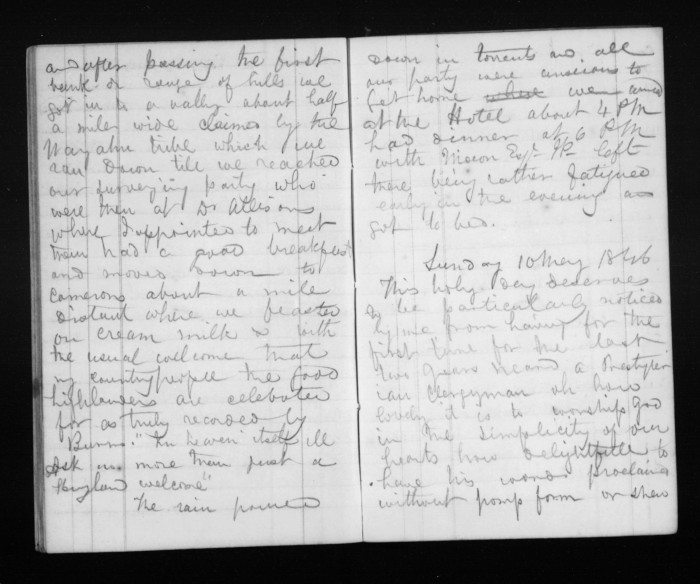 and after passing the first
bank or range of hills we
got in to a vally about half
a mile wide claimed by the
tribe which we
ran down till we reached
our surveying party who
were then at Dr Allisons
where I appointed to meet
them had a good breakfast
and moved down to
Camerons about a mile
distant where we feasted
on cream milk & with
the usual welcome that
my country people the good
highlanders are celebrated
for as truly recorded by
Burns "In heaven itself ill
ask no more than just a
Highland welcome"
The rain poured
down in torrents and all
our party were anxious to
get home where we arrived
at the Hotel about 4 PM
had dinner at 6 PM
with Macon Esqr JP left
there being rather fatigued
early in the evening and
got to bed.
Sunday 10 May 1846
This holy day deserves
to be particularly noticed
by me from having for the
first time for the last
years heard a Presbyter
ian Clergyman oh how
lovely it is to worship God
in the simplicity of our
hearts how delightfull to
have his word proclaimed
without pomp form or shew